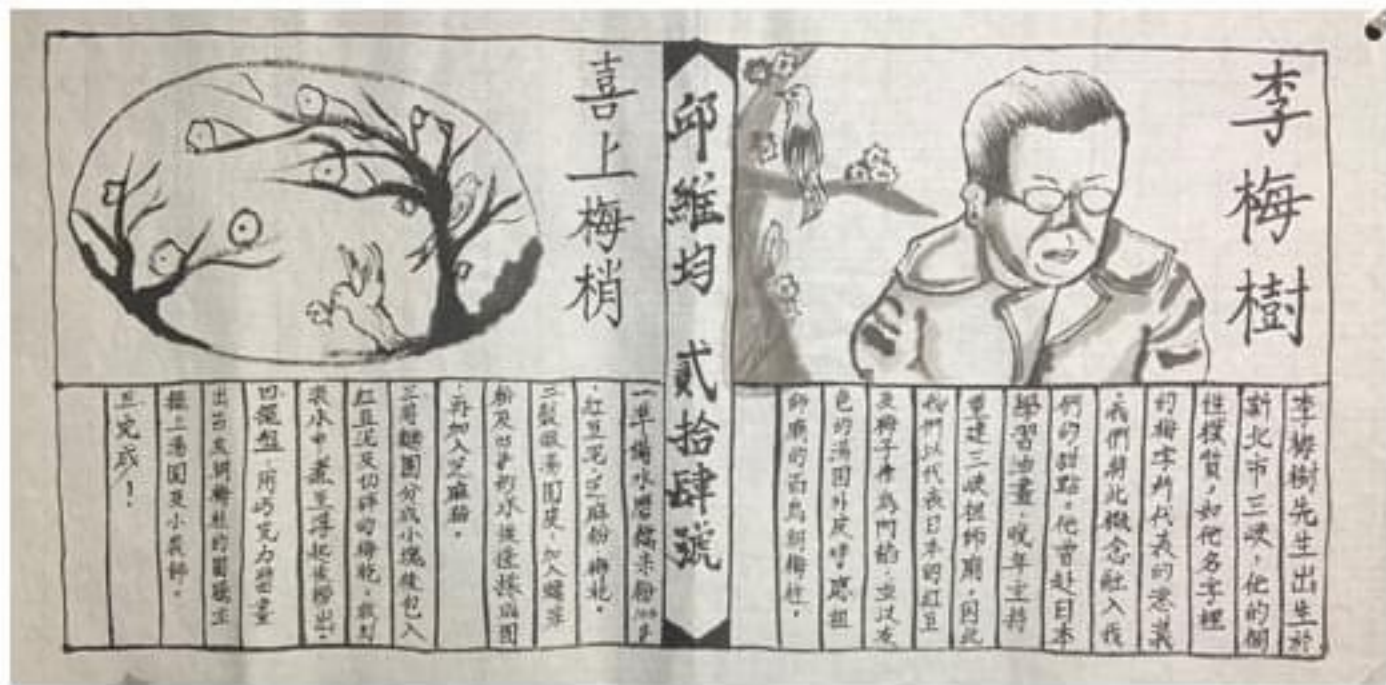 李梅樹
李梅樹先生出生於
新北市三峽，他的個
性樸質，如他名字裡
的梅字所代表的意義
，我們將此概念融入我
們的甜點。他曾赴日本
學習油畫，晚年主持
重建三峽祖師廟，因此
我們以代表日本的紅豆
及梅子作為內餡，並以灰
色的湯圓外皮呼應祖
師廟的百鳥朝梅柱。
邱維均 貳拾肆號
喜上梅梢
一準備水磨糯米粉
、紅豆泥、芝麻粉、梅乾。
二製做湯圓皮，加入糯米
粉及
，再加入芝麻粉。
三將麵團分成小塊後包入
紅豆泥及切碎的梅乾，放到
滾水中煮至浮起後撈出。
四擺盤，用巧克力醬畫
出百鳥朝梅柱的圖騰並
擺上湯圓及小裝飾。
五完成！